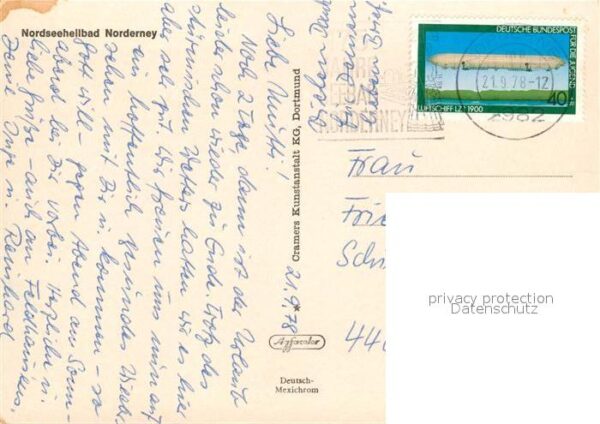 Nordseeheilbad Norderney
21.9.78
Liebe Mutti!
Noch 2 Tage, dann ist der Urlaub
leider schon wieder zu Ende. Trotz des
stürmischen Wetters hatten wir es hier
aber sehr gut. Wir freuen uns nun auf
ein hoffentlich gesundes Wieder-
sehen mit Dir u. kommen - so
Gott will - gegen Abend am Sonn-
abend bei Dir vorbei. Herzliche u.
liebe Grüße - auch an
Deine Inge u. Reinhard
Cramers Kunstanstalt KG, Dortmund
Agfacolor
Deutsch-
Mexichrom
NORDERNEY
21.9.78-12
2982
DEUTSCHE BUNDESPOST
FÜR DIE JUGEND
40
LUFTSCHIFF LZ 1 1900
Frau
privacy protection
Datenschutz